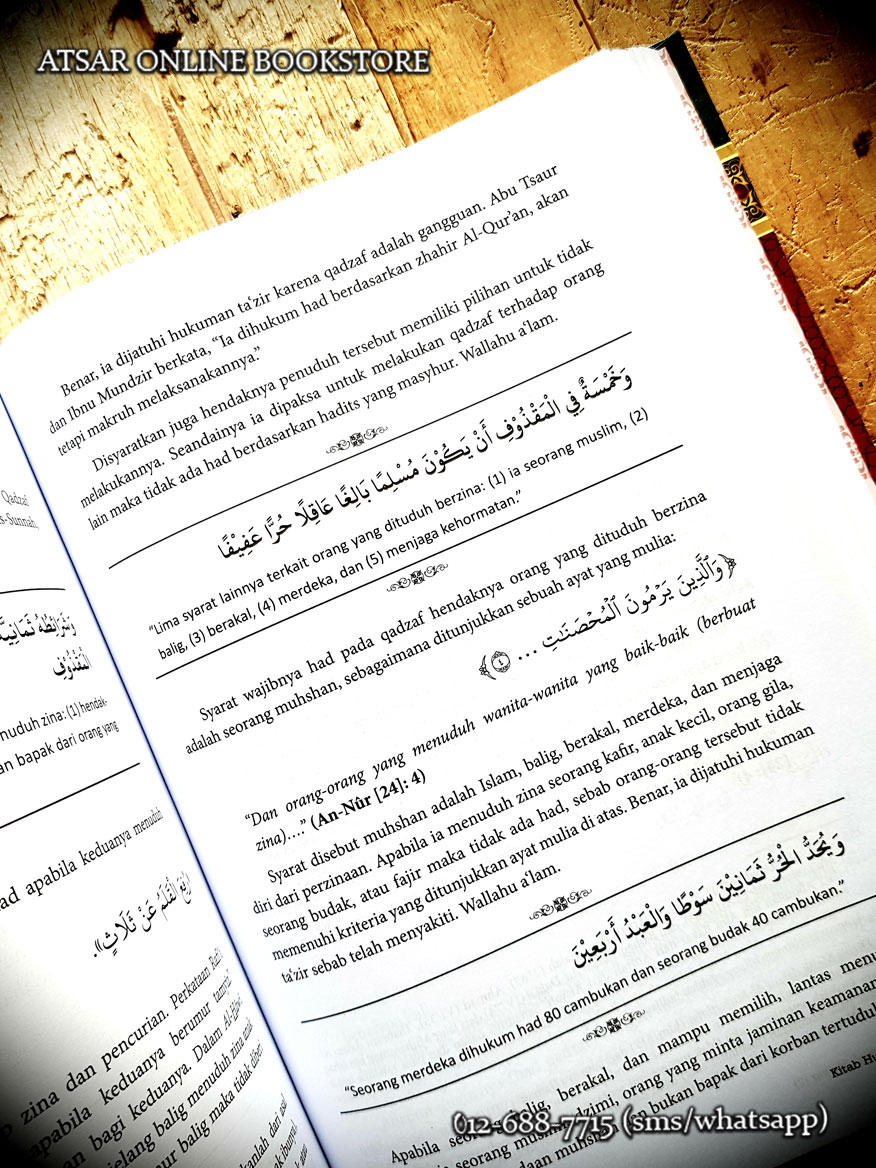 ATSAR ONLINE BOOKSTORE
Qadzaf
s-Sunnah,
وَشَرَائِطُهُ ثَمَانِيَةٌ
الْمَقْذُوْفِ
nuduh zina: (1) hendak-
an bapak dari orang yang
ad apabila keduanya menuduh
الْقَلَمُ عَنْ ثَلَاثٍ».
zina dan pencurian. Perkataan
apabila keduanya berumur tamyiz
an bagi keduanya. Dalam
jelang balig menuduh zina
ur balig maka tidak
Benar, ia dijatuhi hukuman ta‘zir karena qadzaf adalah gangguan. Abu Tsaur
dan Ibnu Mundzir berkata, “Ia dihukum had berdasarkan zhahir Al-Qur’an, akan
tetapi makruh melaksanakannya.”
Disyaratkan juga hendaknya penuduh tersebut memiliki pilihan untuk tidak
melakukannya. Seandainya ia dipaksa untuk melakukan qadzaf terhadap orang
lain maka tidak ada had berdasarkan hadits yang masyhur. Wallahu a‘lam.
وَخَمْسَةٌ فِي الْمَقْذُوْفِ أَنْ يَكُوْنَ مُسْلِمًا بَالِغًا عَاقِلًا حُرًّا عَفِيْفًا
“Lima syarat lainnya terkait orang yang dituduh berzina: (1) ia seorang muslim, (2)
balig, (3) berakal, (4) merdeka, dan (5) menjaga kehormatan.”
Syarat wajibnya had pada qadzaf hendaknya orang yang dituduh berzina
adalah seorang muhshan, sebagaimana ditunjukkan sebuah ayat yang mulia:
﴿وَٱلَّذِينَ يَرْمُونَ ٱلْمُحْصَنَـٰتِ ... ٤﴾
“Dan orang-orang yang menuduh wanita-wanita yang baik-baik (berbuat
zina)....” (An-Nûr [24]: 4)
Syarat disebut muhshan adalah Islam, balig, berakal, merdeka, dan menjaga
diri dari perzinaan. Apabila ia menuduh zina seorang kafir, anak kecil, orang gila,
seorang budak, atau fajir maka tidak ada had, sebab orang-orang tersebut tidak
memenuhi kriteria yang ditunjukkan ayat mulia di atas. Benar, ia dijatuhi hukuman
ta‘zir sebab telah menyakiti. Wallahu a‘lam.
وَيُحَدُّ الْحُرُّ ثَمَانِيْنَ سَوْطًا وَالْعَبْدُ أَرْبَعِيْنَ
“Seorang merdeka dihukum had 80 cambukan dan seorang budak 40 cambukan.”
Apabila balig, berakal, dan mampu memilih, lantas menu
orang yang minta jaminan keamanan
bukan bapak dari korban tertuduh
Kitab Hu
012-688-7715 (sms/whatsapp)